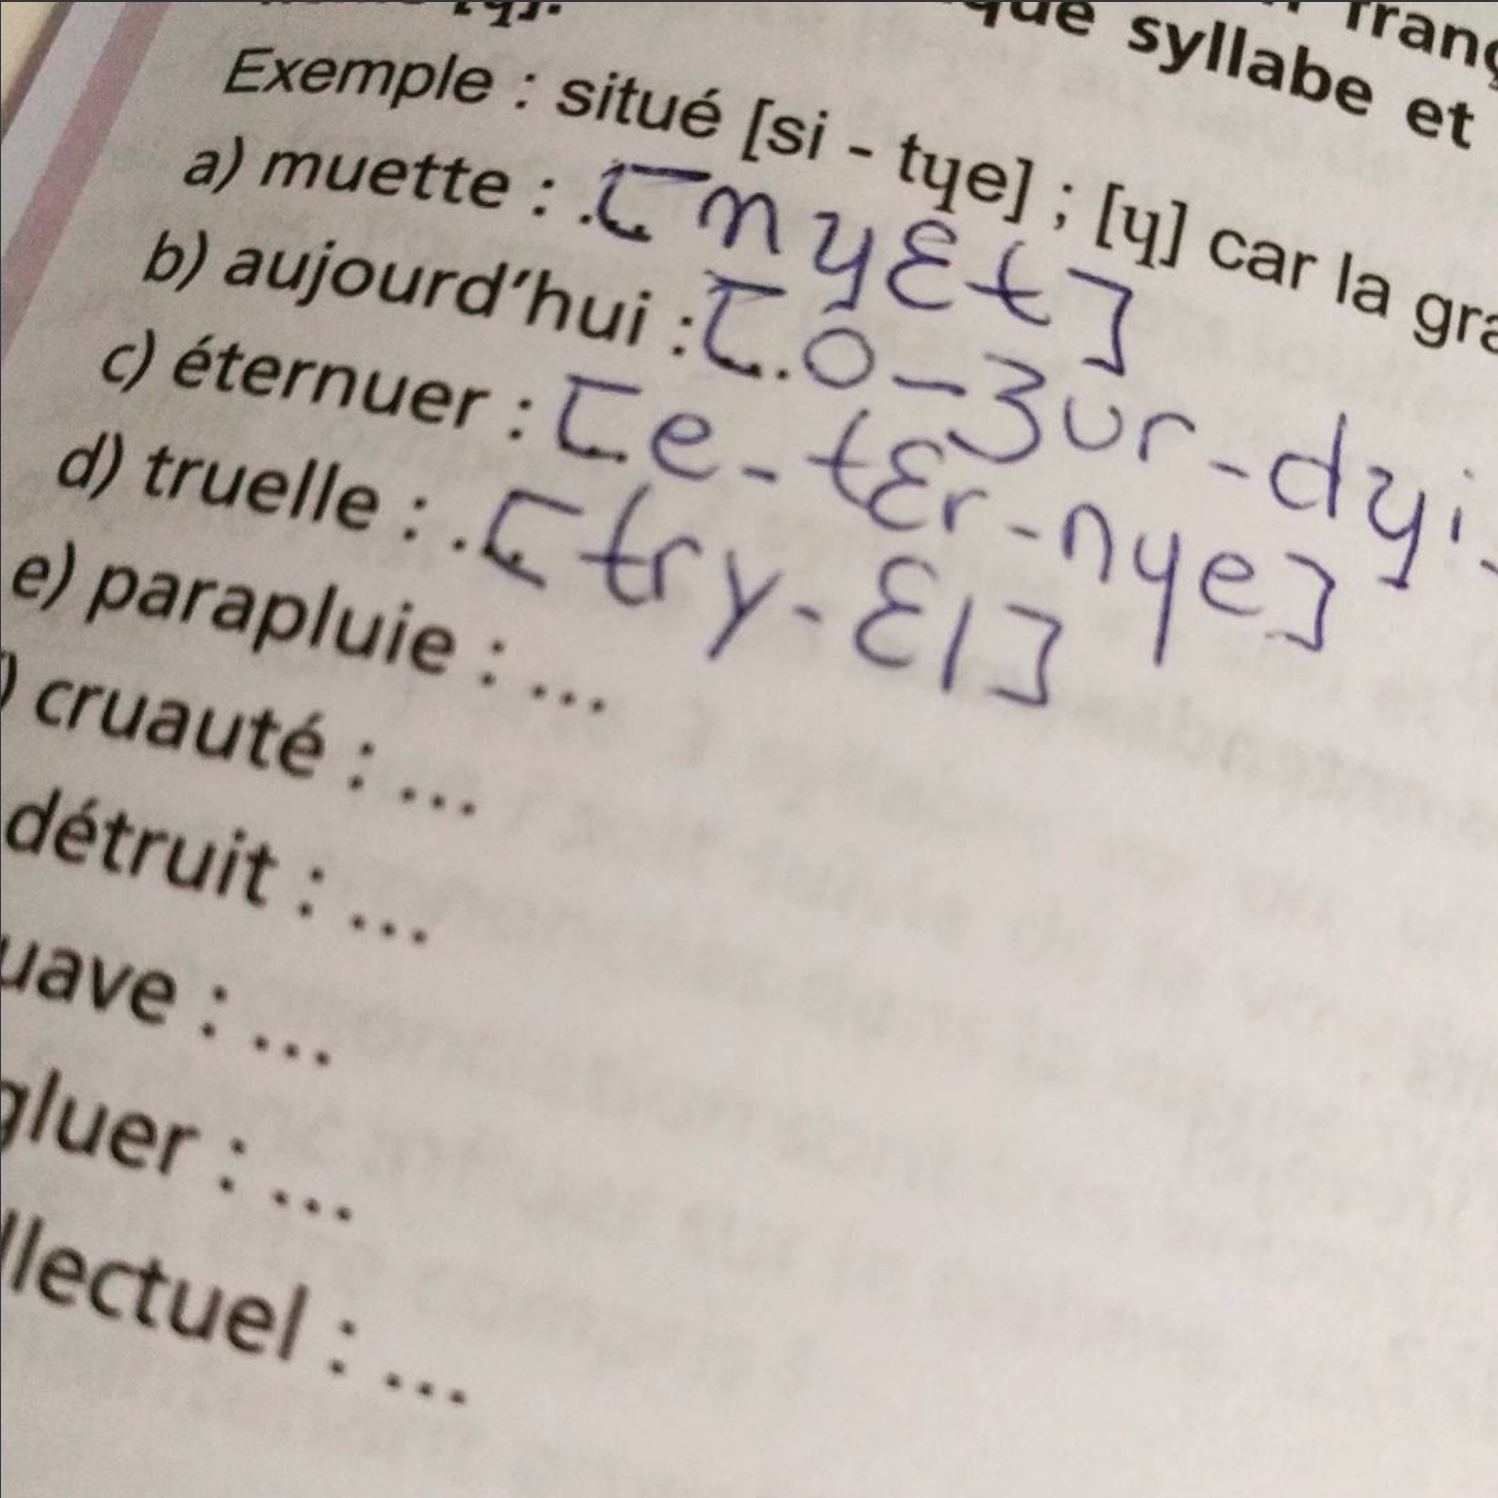 [ɥ].
que syllabe et
Exemple : situé [si - tɥe] ; [ɥ] car la
a) muette : [mɥɛt]
b) aujourd’hui : [o-ʒur-dɥi
c) éternuer : [e-tɛr-nɥe]
d) truelle : [try-ɛl]
e) parapluie : ...
) cruauté : ...
détruit : ...
uave : ...
gluer : ...
llectuel : ...